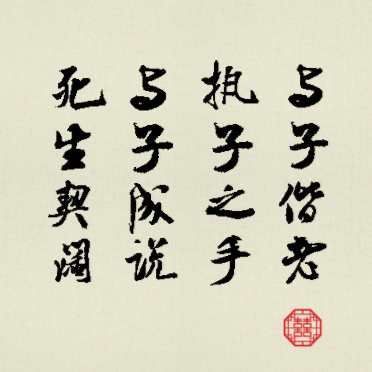 死生契阔
与子成说
执子之手
与子偕老